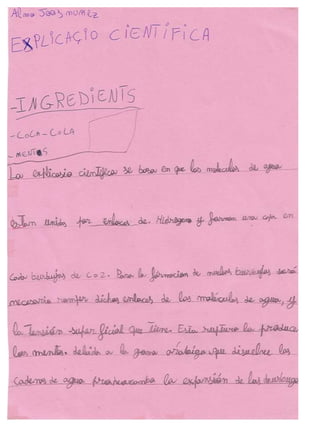 Alma Joas nuñez
EXPLICAÇIO CIENTIFICA
-INGREDIENTS
-COCA-COLA
-MENTOS
La explicasio cientifica se basa en que las moleculas de agua
estan unidas por enlaces de Hidrogeno y forman una capa en
cada burbujas de CO2. Para la formacion de nuevas burbujas será
necesario romper dichos enlaces de las moléculas de agua, y
la Tensión superficial que tiene. Esta ruptura la produce
los mentos, debido a la goma arabiga que disuelve las
cadenas de agua provocando la expansión de las burbujas